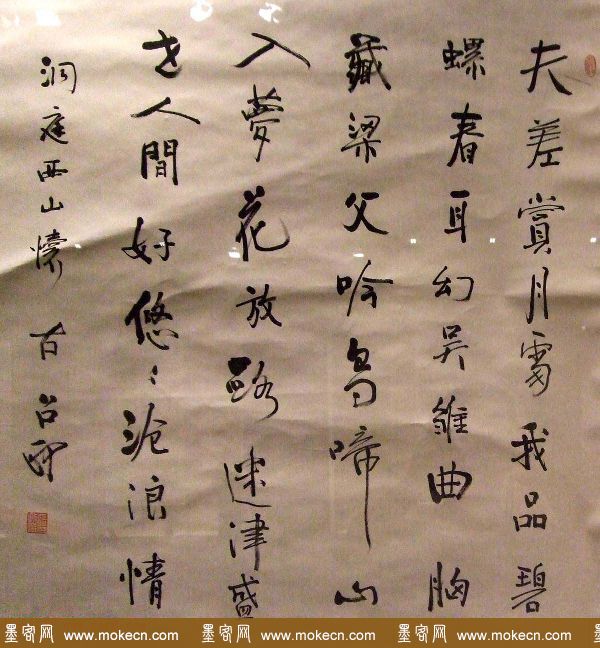 夫差賞月處我品碧
螺春耳幻吳雛曲胸
藏梁父吟鳥啼山
入夢花放路迷津盛
世人間好悠〻滄浪情
洞庭西山懷古
墨客网 www.mokecn.com 墨客网 www.mokecn.com 墨客网 www.mokecn.com